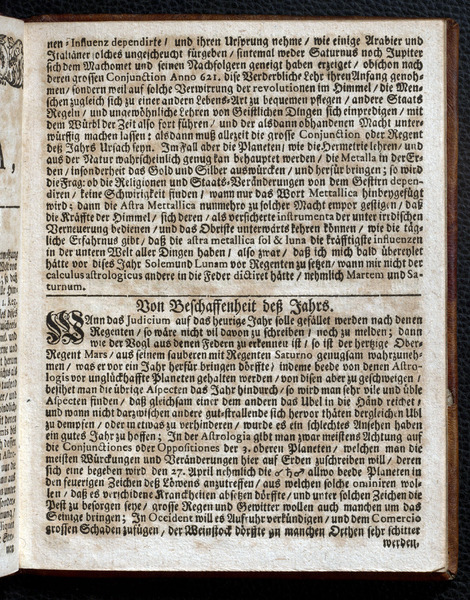 nen-Influenz dependirte / und ihren Ursprung nehme / wie einige Arabier und
Italiäner solches ungescheucht fürgeben / sintemal weder Saturnus noch Jupiter
sich dem Machomet und seinen Nachfolgern geneigt haben erzeiget / obschon nach
deren grossen Conjunction Anno 621. dise Verderbliche Lehr ihren Anfang genoh-
men / sondern weil auf solche Verwirrung der revolutionen im Himmel / die Men-
schen zugleich sich zu einer andern Lebens-Art zu bequemen pflegen / andere Staats
Regeln / und ungewöhnliche Lehren von Geistlichen Dingen sich einpredigen / mit
dem Würbl der Zeit also fort führen / und der alsdann obhandenen Macht unter-
würffig machen lassen; alsdann muß allezeit die grosse Conjunction oder Regent
deß Jahrs Ursach seyn. Im fall aber die Planeten / wie die Hermetrie lehren / und
aus der Natur wahrscheinlich genug kan behauptet werden / die Metalla in der Er-
den / insonderheit das Gold und Silber auswürcken / und herfür bringen; so wird
die Frag: ob die Religionen und Staats-Veränderungen von dem Gestirn depen-
diren / keine Schwirigkeit finden / wann nur das Wort Metallica hinbeygefügt
wird; dann die Astra Mettallica nunmehro zu solcher Macht empor gestigen / daß
die Kräffte der Himmel / sich deren / als versicherte instrumenta der unter irrdischen
Verneuerung bedienen / und das Obriste unterwärts kehren können / wie die täg-
liche Erfahrnus gibt / daß die astra metallica sol & luna die kräfftigste influenzen
in der untern Welt aller Dingen haben / also zwar / daß ich mich bald übereylet
hätte vor dises Jahr Solem und Lunam vor Regenten zu setzen / wann mir nicht der
calculus astrologicus andere in die Feder dictiret hätte / nehmlich Martem und Sa-
turnum.
Von Beschaffenheit deß Jahrs.
WAnn das Judicium auf das heurige Jahr solle gefället werden nach denen
Regenten / so wäre nicht vil davon zu schreiben / noch zu melden; dann
wie der Vogl aus denen Federn zu erkennen ist / so ist der hertzige Ober-
Regent Mars / aus seinem sauberen mit Regenten Saturno genugsam wahrzuneh-
men / was er vor ein Jahr herfür bringen dörffte; indeme beede von denen Astro-
logis vor unglückhaffte Planeten gehalten werden / von disen aber zu geschweigen /
besihet man die übrige Aspecten das Jahr hindurch / so wird man sehr vile und üble
Aspecten finden / daß gleichsam einer dem andern das Ubel in die Händ reichet /
und wann nicht darzwischen andere gut-strallende sich hervor thäten dergleichen Ubl
zu dempfen / oder in etwas zu verhinderen / wurde es ein schlechtes Ansehen haben
ein gutes Jahr zu hoffen; In der Astrologia gibt man zwar meistens Achtung auf
die Conjunctiones oder Oppositiones der 3. oberen Planeten / welchen man die
meisten Würckungen und Veränderungen hier auf Erden zuschreiben will / deren
sich eine begeben wird den 27. April nehmlich die ☍ ♄ ♂ allwo beede Planeten in
den feuerigen Zeichen deß Löwens anzutreffen / aus welchen solche ominiren wol-
len / daß es verschidene Kranckheiten absetzen dörffte / und unter solchen Zeichen die
Pest zu besorgen seye / grosse Regen und Gewitter wollen auch manchen um das
Seinige bringen; In Occident will es Aufruhr verkündigen / und dem Comercio
grossen Schaden zufügen / der Weinstock dörffte zu manchen Orthen sehr schitter
werden,